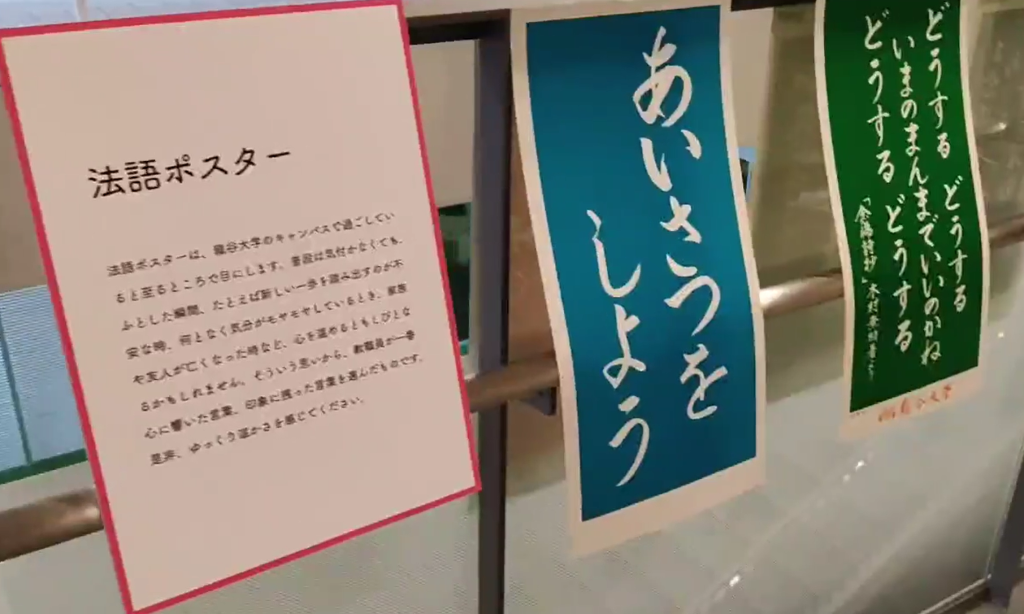 法語ポスター
法語ポスターは、龍谷大学のキャンパスで過ごしてい
ると至るところで目にします。普段は気付かなくても、
ふとした瞬間、たとえば新しい一歩を踏み出すのが不
安な時、何となく気分がモヤモヤしているとき、家族
や友人が亡くなった時など、心を温めるともしびとな
るかもしれません。そういう思いから、教職員が一番
心に響いた言葉、印象に残った言葉を選んだものです。
是非、ゆっくり温かさを感じてください。
あいさつを
しよう
どうする どうする
いまのまんまでいいのかね
どうする どうする
龍谷大学